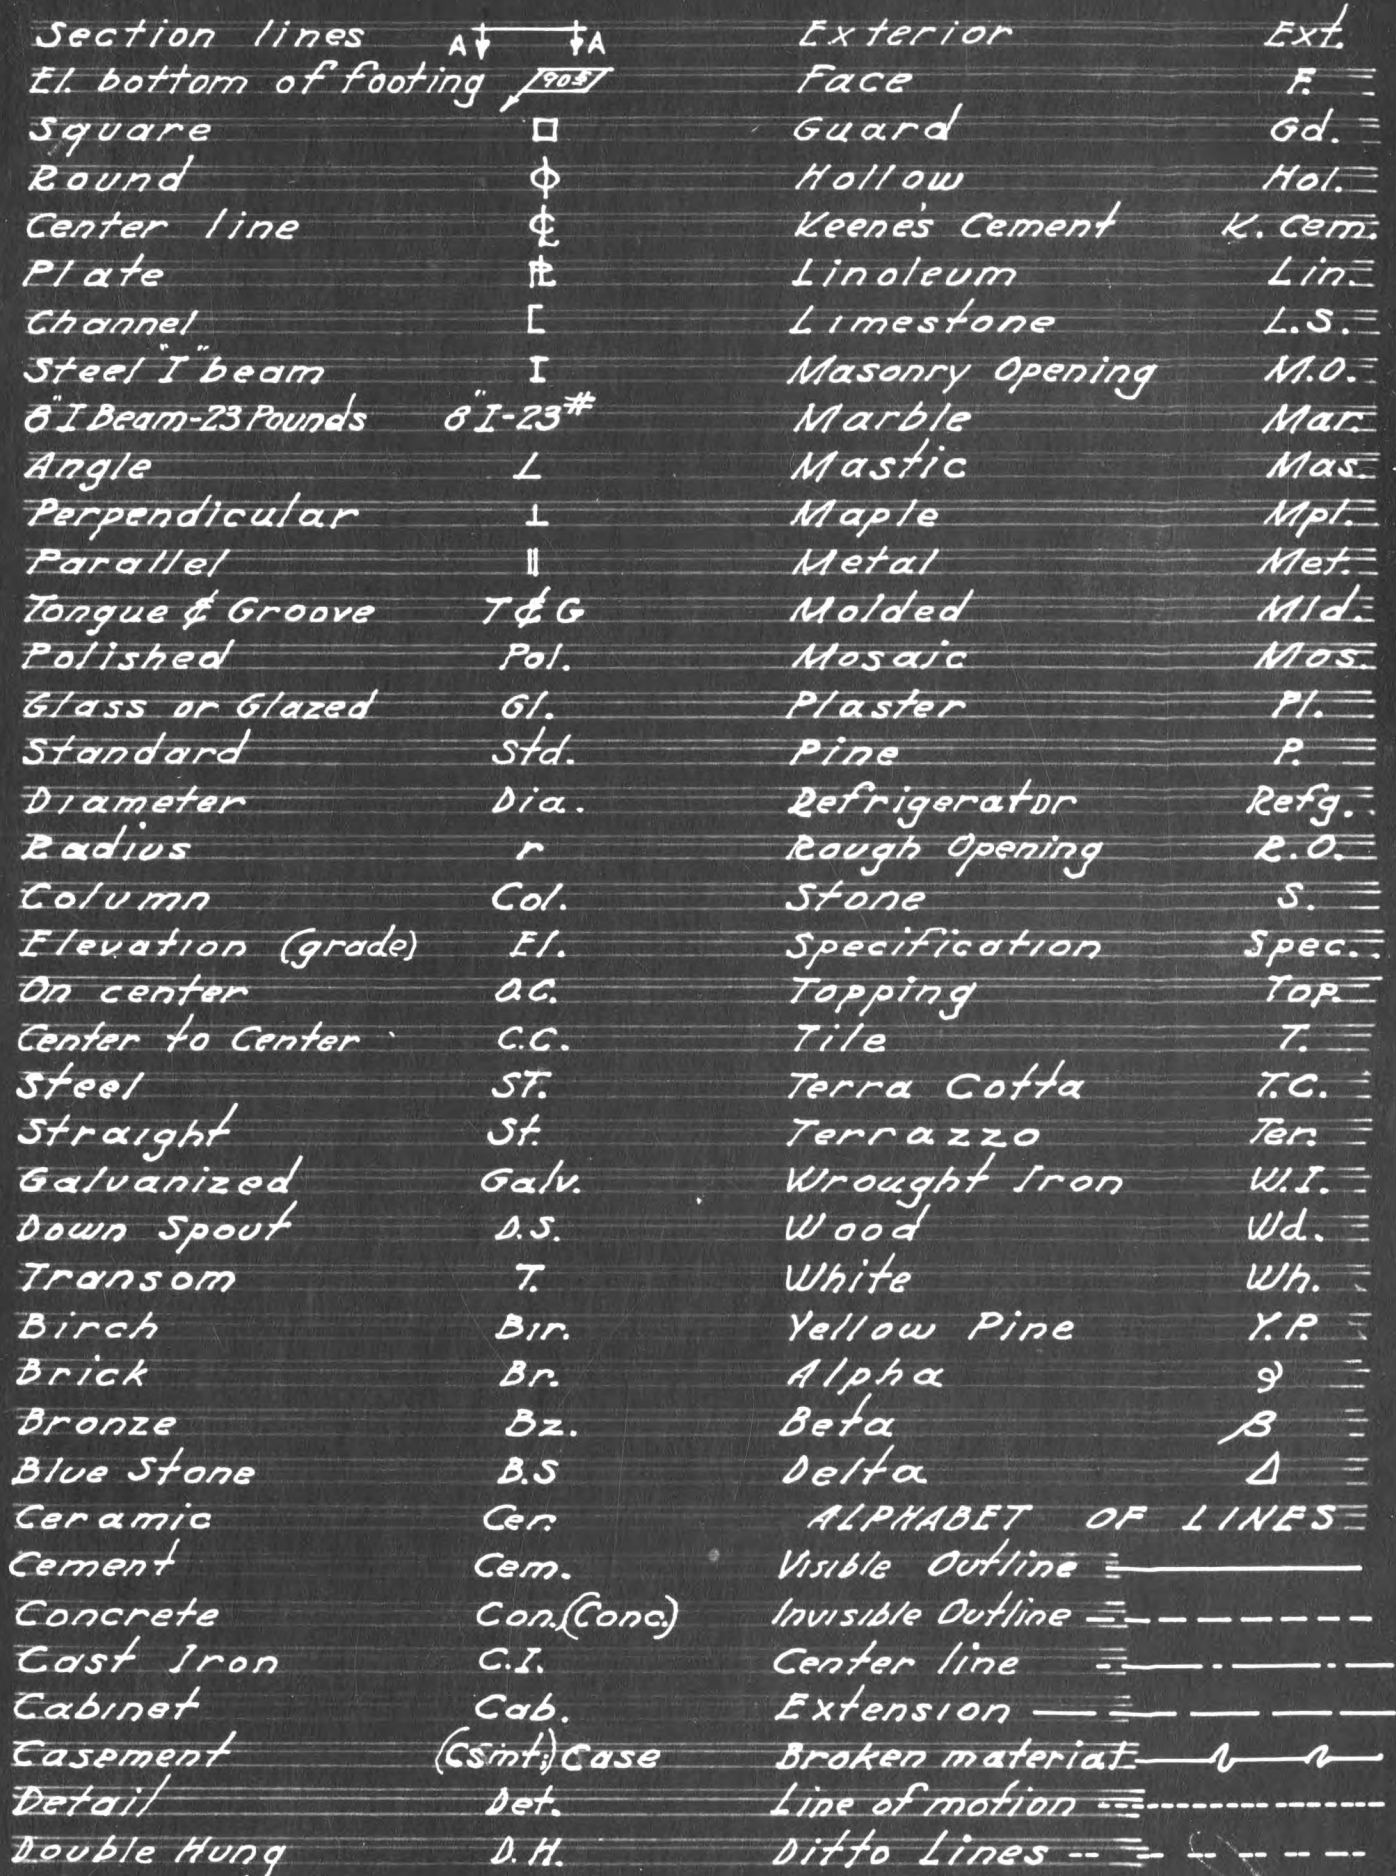 Section lines A A
El. bottom of footing 90⁵
Square □
Round ϕ
Center line ℄
Plate ⅊
Channel [
Steel "I" beam I
8" I Beam-23 Pounds 8" I-23#
Angle ∠
Perpendicular ⊥
Parallel ∥
Tongue & Groove T & G
Polished Pol.
Glass or Glazed Gl.
Standard Std.
Diameter Dia.
Radius r
Column Col.
Elevation (grade) El.
On center O.C.
Center to Center C.C.
Steel ST.
Straight St.
Galvanized Galv.
Down Spout D.S.
Transom T.
Birch Bir.
Brick Br.
Bronze Bz.
Blue Stone B.S
Ceramic Cer.
Cement Cem.
Concrete Con. (Conc.)
Cast Iron C.I.
Cabinet Cab.
Casement (Csmt.) Case
Detail Det.
Double Hung D.H.
Exterior Ext.
Face F.
Guard Gd.
Hollow Hol.
Keene's Cement K. Cem.
Linoleum Lin.
Limestone L.S.
Masonry Opening M.O.
Marble Mar.
Mastic Mas.
Maple Mpl.
Metal Met.
Molded Mld.
Mosaic Mos.
Plaster Pl.
Pine P.
Refrigerator Refg.
Rough Opening R.O.
Stone S.
Specification Spec.
Topping Top.
Tile T.
Terra Cotta T.C.
Terrazzo Ter.
Wrought Iron W.I.
Wood Wd.
White Wh.
Yellow Pine Y.P.
Alpha
Beta β
Delta Δ
ALPHABET OF LINES
Visible Outline
Invisible Outline
Center line
Extension
Broken material
Line of motion
Ditto Lines